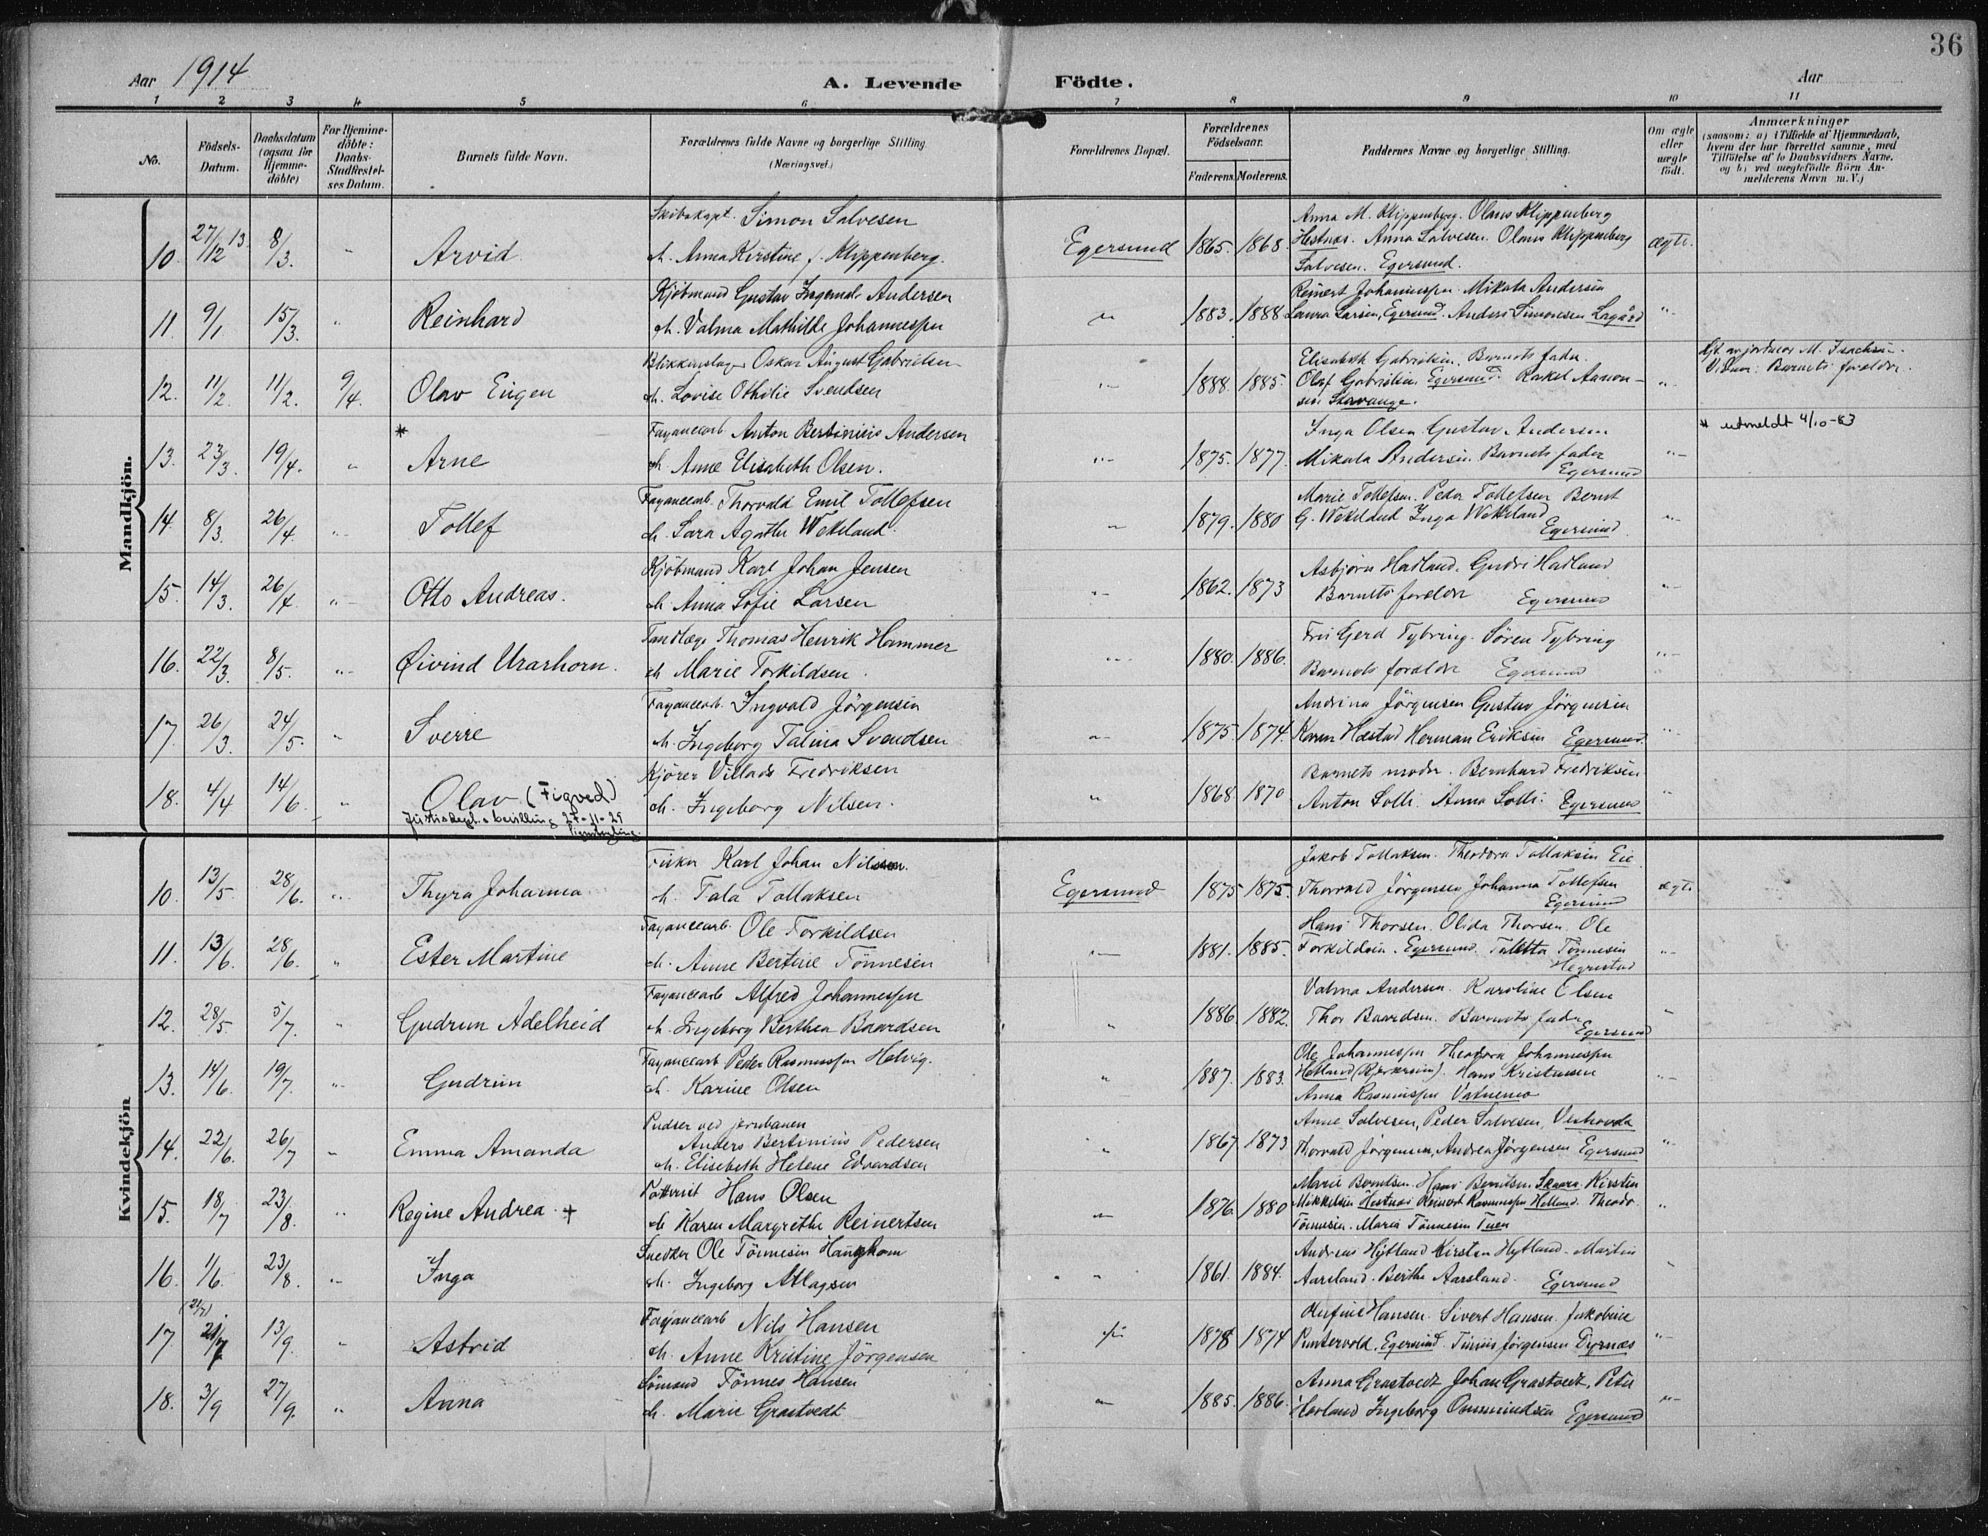 36
Aar 1914
A. Levende Födte.
Aar
1 2 3 4 5 6 7 8 9 10 11
No.
Födsels-Datum.
Daabsdatum (ogsaa for Hjemme-döbte)
For Hjemme-döbte: Daabs-Stadfæstel-ses Datum.
Barnets fulde Navn.
Forældrenes fulde Navne og borgerlige Stilling
(Næringsvei.)
Forældrenes Bopæl.
Forældrenes Födselsaar.
Faderens. Moderens.
Faddernes Navne og borgerlige Stilling.
Om ægte eller uægte födt.
Anmærkninger
(saasom: a) i Tilfælde af Hjemmedaab,
hvem der har forrettet samme, med
Tilföielse af to Daabsvidners Navne.
og b) ved uægtefödte Börn An-
melderens Navn m. V.)
Mandkjön.
Skibskapt. Simon Salvesen Anna M. Klippenberg. Olaus Klippenberg
10 27/12 13. 8/3. " Arvid Egersund 1865. 1868. Hestnæs. Anna Salvesen. Olaus Klippenberg ægte.
h. Anna Kirstine f. Klippenberg. Salvesen. Egersund.
Kjöbmand Gustav Ingemal Andersen Reinert Johannessen. Mikala Andersen
11 9/1 15/3. " Reinhard h. Valma Mathilde Johannessen " 1883. 1888 Laura Larsen, Egersund. Anders Simonsen Lagård "
Blikkenslager Oskar August Gabrielsen Elisabeth Gabrielsen. Barnets fader.
12. 11/2. 11/2. 9/4. Olav Eugen " 1888. 1885. Olaf Gabrielsen Egersund. Rakel Aanon- "
h. Lovise Othilie Svendsen sen Stavanger.
Hjd. av jordmor M. Isachsen. Vidner: Barnets foreldre.
Fayancearb Anton Bertinius Andersen Inga Olsen Gustav Andersen
13. 23/3. 19/4. " * Arne h. Anne Elisabeth Olsen. " 1875. 1877. Mikala Andersen. Barnets fader Egersund " * utmeldt 4/10-63
Fayancearb. Thorvald Emil Tollefsen Marie Tollefsen. Peder Tollefsen Bernt
14. 8/3. 26/4. " Tollef h. Sara Agathe Wekeland. " 1879. 1880 G. Wekeland Inga Wekeland Egersund. "
Kjöbmand Karl Johan Jensen Asbjörn Hadland. Gudri Hadland
15. 14/3. 26/4 " Otto Andreas. h Anna Sofie Larsen " 1862. 1873 Barnets foreldre Egersund "
Tandlæge Thomas Henrik Hammer Fru Gerd Tybring. Sören Tybring
16. 22/3. 8/5. " Øivind Urarhorn. h Marie Torkildsen. " 1880. 1886. Barnets foreldre Egersund "
Fayancearb. Ingvald Jörgensen Andrina Jörgensen Gustav Jörgensen
17. 26/3. 24/5. " Sverre h. Ingeborg Talina Svendsen " 1875. 1874. Karen Hæstad Herman Eriksen Egersund. "
Kjörer Villads Fredriksen Barnets moder. Bernhard Fredriksen
18. 4/4 14/6. " Olav (Figved) h. Ingeborg Nilsen. " 1868. 1870. Anton Solli. Anna Solli. Egersund "
Justisdept.s bevilling 27-11-29
Kvindekjön
Fisker Karl Johan Nilssen. Jakob Tollaksen. Theodora Tollaksen Eie
10. 13/5. 28/6. " Thyra Johanna h. Tala Tollaksen Egersund 1875 1875. Thorvald Jörgensen Johanna Tollefsen Egersund ægte
Fayancearb. Ole Torkildsen Hans Thorsen. Olida Thorsen. Ole
11. 13/6. 28/6. " Ester Martine h. Anne Bertine Tönnesen " 1881. 1885. Torkildsen. Egersund. Taletta Tönnesen Hegrestad "
Fayancearb Alfred Johannessen Valma Andersen. Karoline Olsen
12. 28/5. 5/7. " Gudrun Adelheid h. Ingeborg Berthea Baardsen " 1886 1882. Thor Baardsen. Barnets fader Egersund "
Fayancearb Peder Rasmussen Helvig. Ole Johannessen Theodora Johannessen
13. 14/6. 19/7. " Gudrun h. Karine Olsen " 1887. 1883. Hetland (Bjerkreim). Hans Kristensen "
Anna Rasmussen Vatnemo
Pudser ved jernbanen Anne Salvesen, Peder Salvesen, Veshovda
14. 22/6. 26/7 " Emma Amanda Anders Bertinius Pedersen " 1867. 1873 Thorvald Jörgensen, Andrea Jörgensen Egersund "
h. Elisebeth Helene Edvardsen
Pottemit Hans Olsen Marie Berntsen. Hans Berntsen Skaara. Kirsten
15. 18/7 23/8. " Regine Andrea. + h Karen Margrethe Reinertsen " 1876. 1880 Mikkelsen Hestnæs Reinert Rasmussen Hetland. Theodr. "
Tönnesen. Maria Tönnesen Tuen
Snedker Ole Tönnesen Haughom Andreas Hytland Kirsten Hytland. Martin
16. 1/6. 23/8. " Inga h. Ingeborg Atlagsen " 1861. 1884. Aarsland. Berthe Aarsland. Egersund "
Fayancearb Nils Hansen Rufine Hansen. Sivert Hansen. Jakobine
17. (21/7) 21/7 13/9. " Astrid h. Anne Kristine Jörgensen " 1878 1874 Puntervold, Egersund. Tönnes Jörgensen Dyrnæs "
Sömand Tönnes Hansen Anna Grastvedt Johan Grastvedt, Peter
18. 3/9 27/9. " Anna h. Marie Grastvedt " 1885. 1886. Havland Ingeborg Ommundsen Egersund "